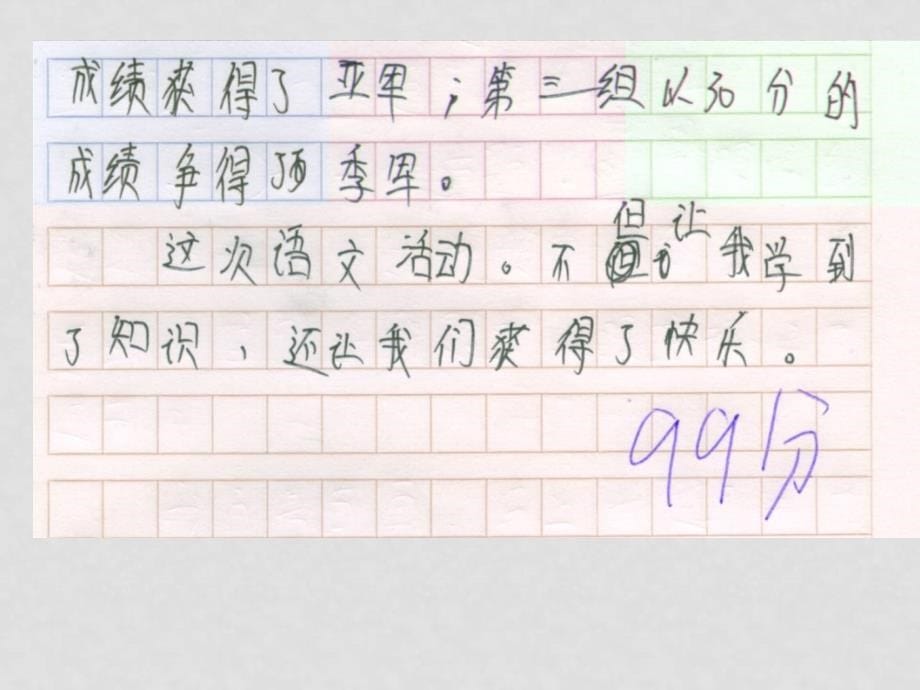 成绩获得了亚军；第三组以30分的
成绩争得了季军。
这次语文活动。不但让我学到
了知识，还让我们获得了快乐。
99分